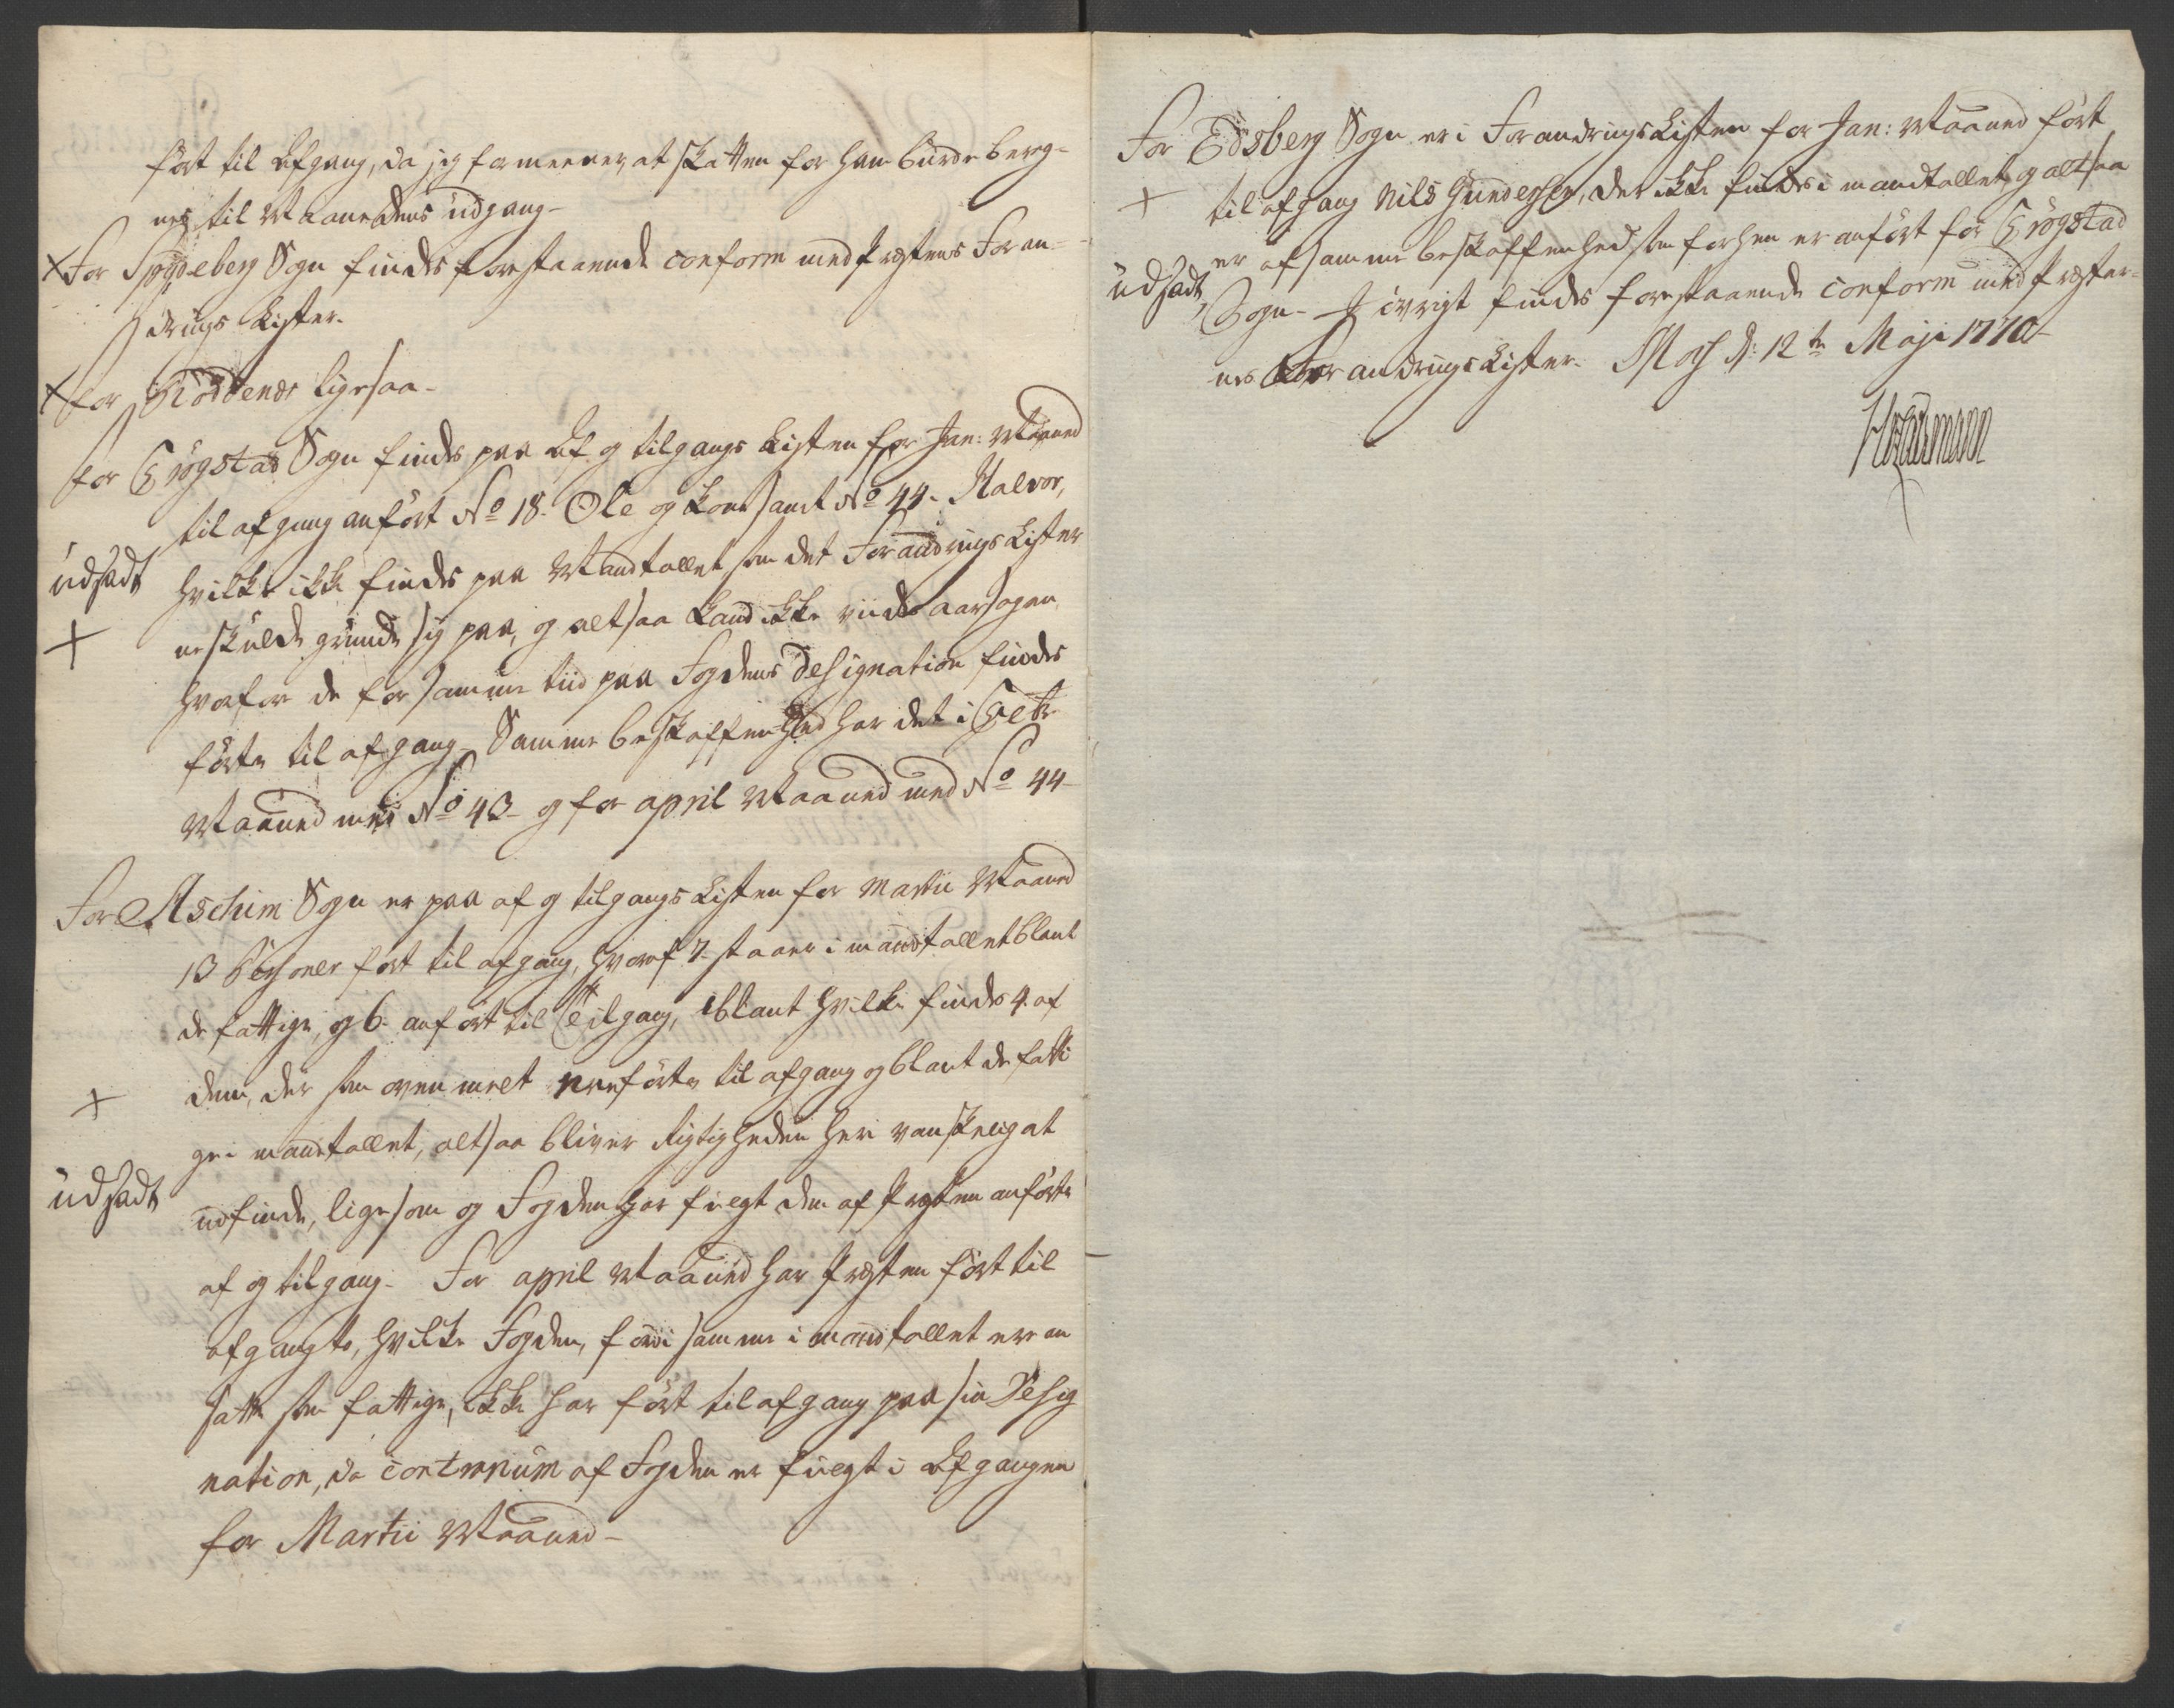 ført til Afgang, da jeg formeener at skatten for ham burde bereg-
nes til Maanedens udgang-
× For Spydeberg Sogn findes forestaaende conform med Præstens Foran-
drings Lister.
× for Rødenes ligesaa-
for Trøgstad Sogn findes paa Af og tilgangs Listen for Jan: Maaned
til afgang anført No 18. Ole og kone samt No 44. Halvor,
udsadt hvilke ikke findes paa Mandtallet som det Forandrings Lister
+ ne skulde grunde sig paa, og altsaa kand ikke viides aarsagen
hvorfor de for samme tiid paa Fogdens Designation findes
førte til afgang- Samme beskaffenhed har det i Febr
Maaned med No 43- og for april Maaned med No 44-
For Aschim Sogn er paa af og tilgangs Listen for Martii Maaned
13 Personer ført til afgang, hvoraf 7- staaer i mandtallet blant
de fattige, og 6- anført til Tilgang, iblant hvilke findes 4. af
+ dem, der som oven meelt anførte til afgang og blant de fatti
ge i mandtallet, altsaa bliver Rigtigheden heri vanskelig at
udsadt udfinde, ligesom og Fogden har fuegt dem af Præsten anførte
af og tilgang- For april Maaned har Præsten ført til
afgang to, hvilke Fogden, fordi samme i mandtallet ere an
satte som fattige, ikke har ført til afgang paa sin Desig
nation, da contrarium af Fogden er fuegt i Afgangen
for Martii Maaned-
For Edsberg Sogn er i Forandrings Listen for Jan: Maaned ført
+ til afgang Nils Gundersen, der ikke findes i mandtallet, og altsaa
er af samme beskaffenhed som forhen er anført for Trøgstad
udsadt, Sogn- I øvrigt findes forestaaende conform med Præster-
nes Forandrings Lister. Moss d: 12te Maji 1770-